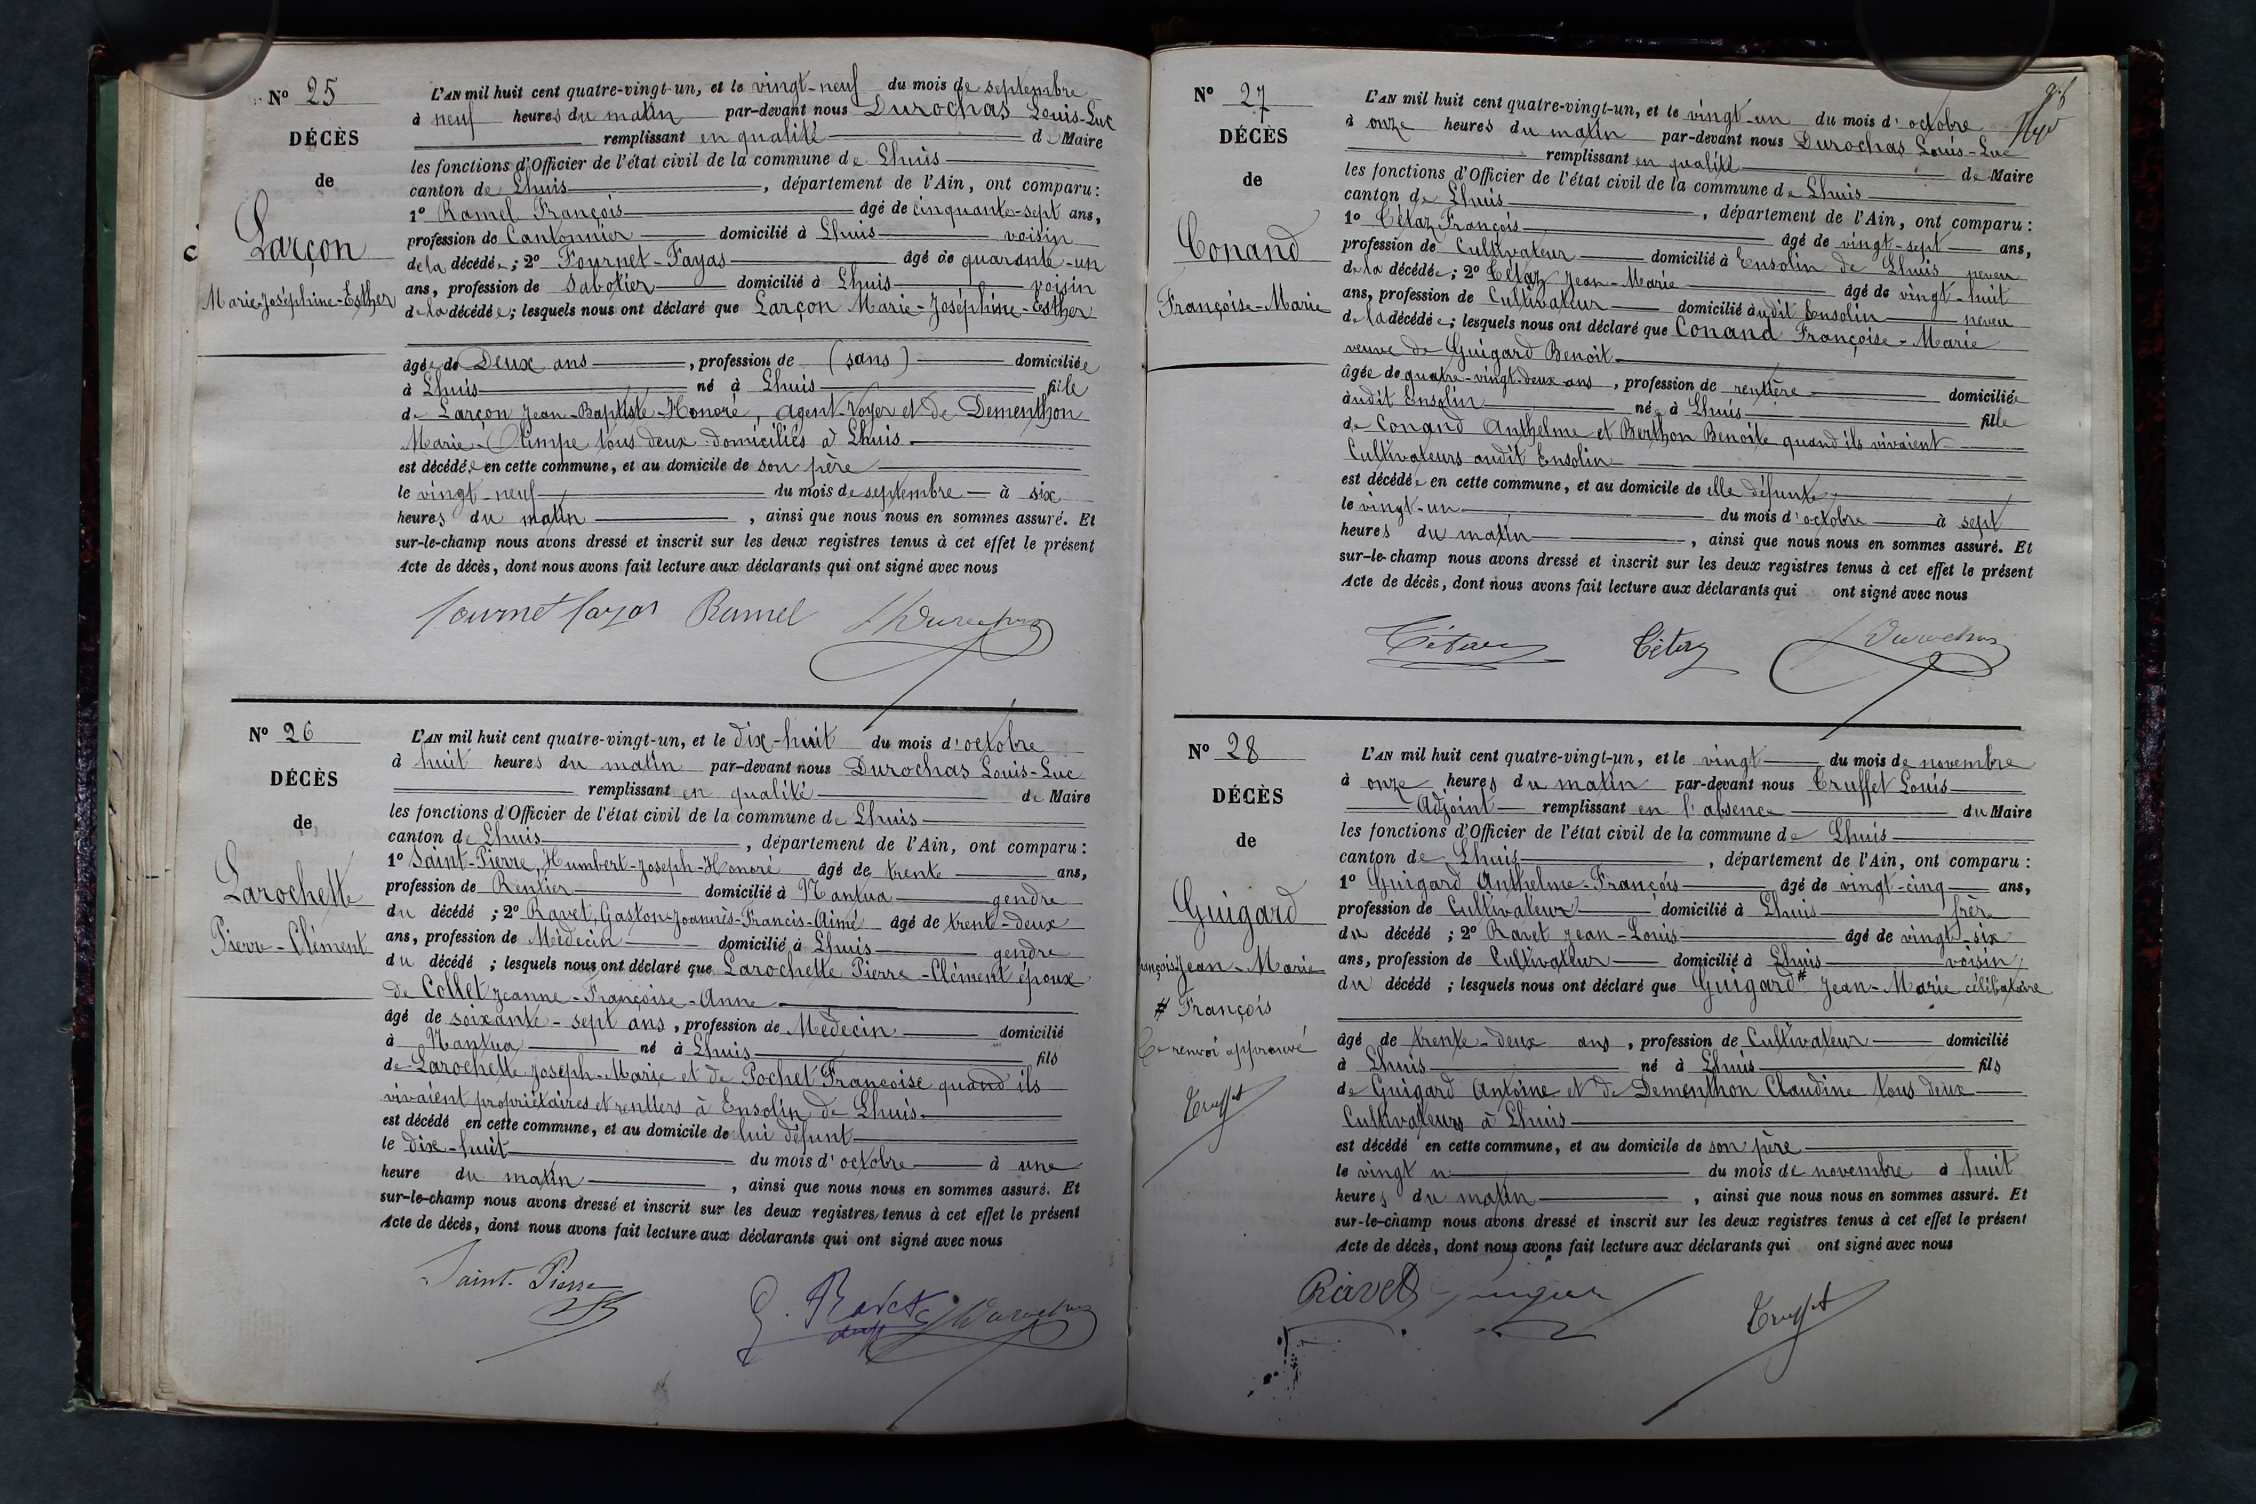 N° 25
DÉCÈS
de
Larçon
Marie-Joséphine-Esther
L'AN mil huit cent quatre-vingt-un, et le vingt-neuf du mois de septembre
à neuf heures du matin par-devant nous Durochas Louis-Luc
remplissant en qualité de Maire
les fonctions d'Officier de l'état civil de la commune de Lhuis
canton de Lhuis, département de l'Ain, ont comparu:
1° Ramel François âgé de cinquante-sept ans,
profession de Cantonnier domicilié à Lhuis voisin
de la décédée; 2° Fournet-Fayas âgé de quarante-un
ans, profession de Sabotier domicilié à Lhuis voisin
de la décédée; lesquels nous ont déclaré que Larçon Marie-Joséphine-Esther
âgée de Deux ans, profession de (sans) domiciliée
à Lhuis né à Lhuis fille
de Larçon Jean-Baptiste-Honoré, Agent-Voyer et de Dementhon
Marie-Olimpe tous deux domiciliés à Lhuis
est décédée en cette commune, et au domicile de son père
le vingt-neuf du mois de septembre à six
heures du matin, ainsi que nous nous en sommes assuré. Et
sur-le-champ nous avons dressé et inscrit sur les deux registres tenus à cet effet le présent
Acte de décès, dont nous avons fait lecture aux déclarants qui ont signé avec nous
fournet fayas Ramel Durochas
N° 26
DÉCÈS
de
Larochette
Pierre-Clément
L'AN mil huit cent quatre-vingt-un, et le dix-huit du mois d'octobre
à huit heures du matin par-devant nous Durochas Louis-Luc
remplissant en qualité de Maire
les fonctions d'Officier de l'état civil de la commune de Lhuis
canton de Lhuis, département de l'Ain, ont comparu:
1° Saint-Pierre, Humbert-Joseph-Honoré âgé de trente ans,
profession de Rentier domicilié à Nantua gendre
du décédé; 2° Ravet, Gaston-Joannès-Francis-Aimé âgé de trente-deux
ans, profession de Médecin domicilié à Lhuis gendre
du décédé; lesquels nous ont déclaré que Larochette Pierre-Clément époux
de Collet Jeanne-Françoise-Anne
âgé de soixante-sept ans, profession de Médecin domicilié
à Nantua né à Lhuis fils
de Larochette Joseph-Marie et de Pochet Françoise quand ils
vivaient propriétaires et rentiers à Ensolin de Lhuis
est décédé en cette commune, et au domicile de lui défunt
le dix-huit du mois d'octobre à une
heure du matin, ainsi que nous nous en sommes assuré. Et
sur-le-champ nous avons dressé et inscrit sur les deux registres tenus à cet effet le présent
Acte de décès, dont nous avons fait lecture aux déclarants qui ont signé avec nous
Saint-Pierre G. Ravet Durochas
N° 27
DÉCÈS
de
Conand
Françoise-Marie
L'AN mil huit cent quatre-vingt-un, et le vingt-un du mois d'octobre
à onze heures du matin par-devant nous Durochas Louis-Luc
remplissant en qualité de Maire
les fonctions d'Officier de l'état civil de la commune de Lhuis
canton de Lhuis, département de l'Ain, ont comparu:
1° Cétaz François âgé de vingt-sept ans,
profession de Cultivateur domicilié à Ensolin de Lhuis neveu
de la décédée; 2° Cétaz Jean-Marie âgé de vingt-huit
ans, profession de Cultivateur domicilié audit Ensolin neveu
de la décédée; lesquels nous ont déclaré que Conand Françoise-Marie
veuve de Guigard Benoit
âgée de quatre-vingt-deux ans, profession de rentière domiciliée
audit Ensolin née à Lhuis fille
de Conand Anthelme et Berthon Benoite quand ils vivaient
Cultivateurs audit Ensolin
est décédée en cette commune, et au domicile de elle défunte
le vingt-un du mois d'octobre à sept
heures du matin, ainsi que nous nous en sommes assuré. Et
sur-le-champ nous avons dressé et inscrit sur les deux registres tenus à cet effet le présent
Acte de décès, dont nous avons fait lecture aux déclarants qui ont signé avec nous
Cétaz Cétaz Durochas
N° 28
DÉCÈS
de
Guigard
Jean-Marie
# François
Ce renvoi approuvé
Truffet
L'AN mil huit cent quatre-vingt-un, et le vingt du mois de novembre
à onze heures du matin par-devant nous Truffet Louis
Adjoint remplissant en l'absence du Maire
les fonctions d'Officier de l'état civil de la commune de Lhuis
canton de Lhuis, département de l'Ain, ont comparu:
1° Guigard Anthelme-François âgé de vingt-cinq ans,
profession de Cultivateur domicilié à Lhuis frère
du décédé; 2° Ravet Jean-Louis âgé de vingt-six
ans, profession de Cultivateur domicilié à Lhuis voisin
du décédé; lesquels nous ont déclaré que Guigard # Jean-Marie célibataire
âgé de trente-deux ans, profession de Cultivateur domicilié
à Lhuis né à Lhuis fils
de Guigard Antoine et de Dementhon Claudine tous deux
Cultivateurs à Lhuis
est décédé en cette commune, et au domicile de son père
le vingt du mois de novembre à huit
heures du matin, ainsi que nous nous en sommes assuré. Et
sur-le-champ nous avons dressé et inscrit sur les deux registres tenus à cet effet le présent
Acte de décès, dont nous avons fait lecture aux déclarants qui ont signé avec nous
Ravet Guigard Truffet